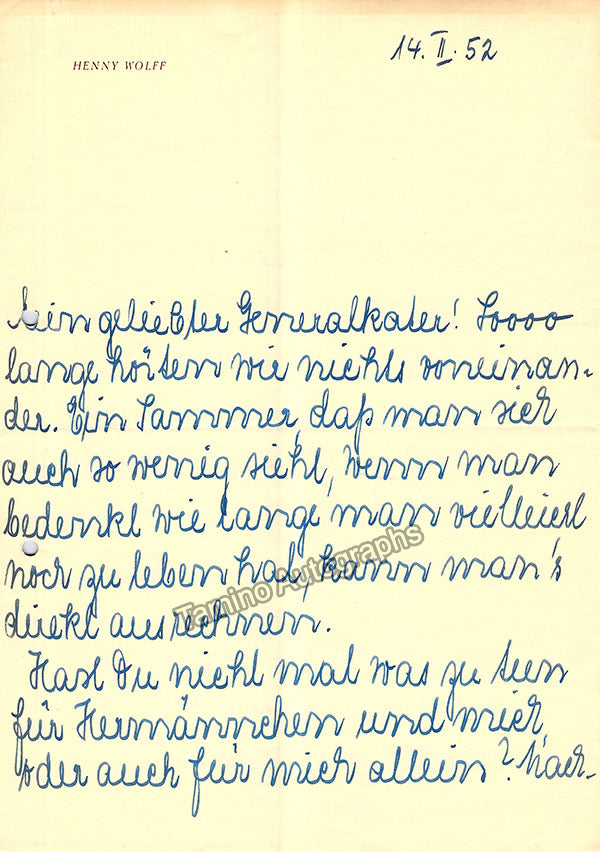 HENNY WOLFF
14. II. 52
Mein geliebter Generalkater! Soooo
lange hörten wir nichts voneinan-
der. Ein Jammer, daß man sich
auch so wenig sieht, wenn man
bedenkt wie lange man vielleicht
noch zu leben hat, kann man's
direkt ausrechnen.
Hast Du nicht mal was zu tun
für Hermännchen und mich,
oder auch für mich allein? Nach-
Tamino Autographs